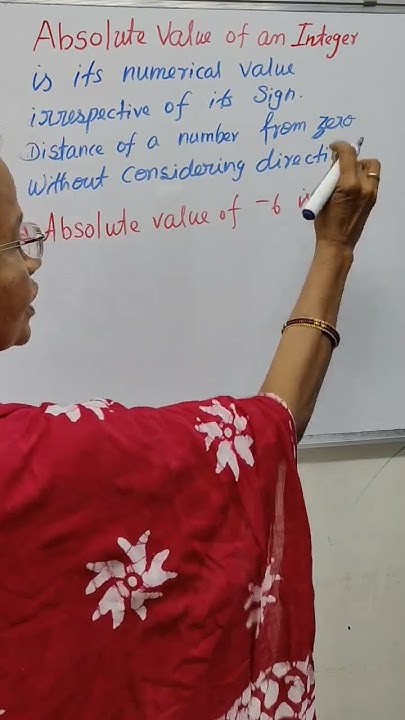 Absolute Value of an Integer
is its numerical value
irrespective of its Sign.
Distance of a number from zero
Without Considering directi
Absolute value of -6 i